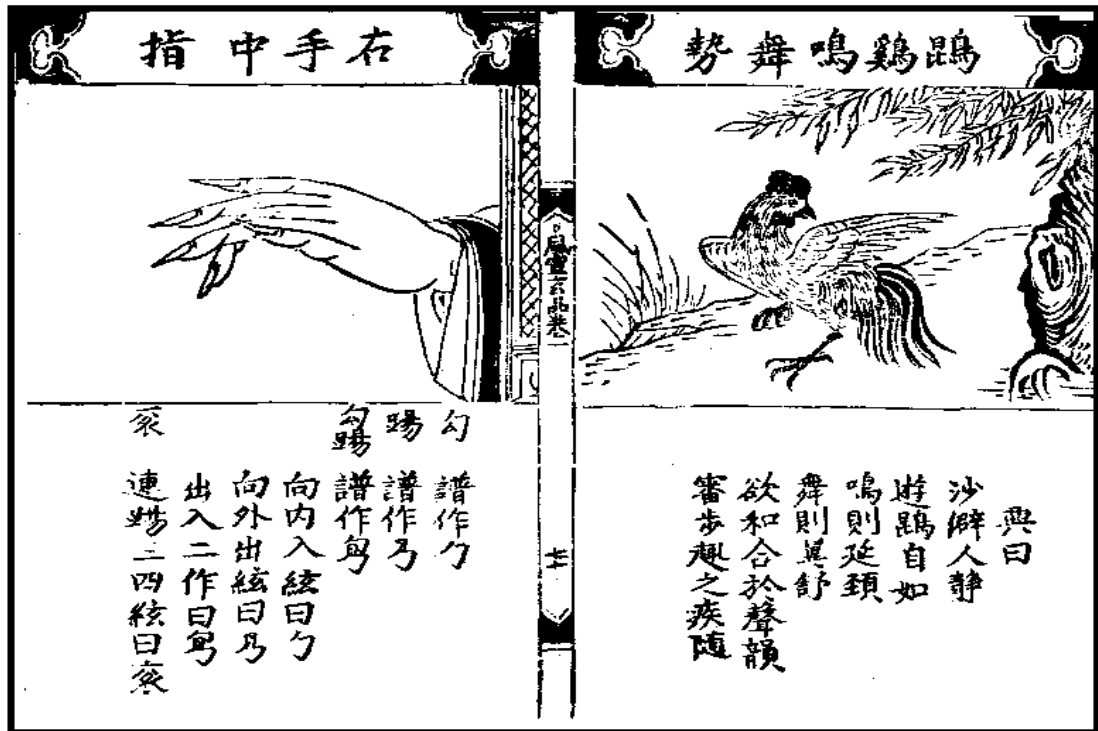 鵾鷄鳴舞勢
興曰
沙僻人静
遊鵾自如
鳴則延頸
舞則翼舒
欲和合於聲韻
審步趣之疾随
風宣玄品卷
右手中指
勾 譜作勹
踢 譜作乃
勾踢 譜作
向内入絃曰勹
向外出絃曰乃
出入二作曰
衮 連踢二四絃曰衮